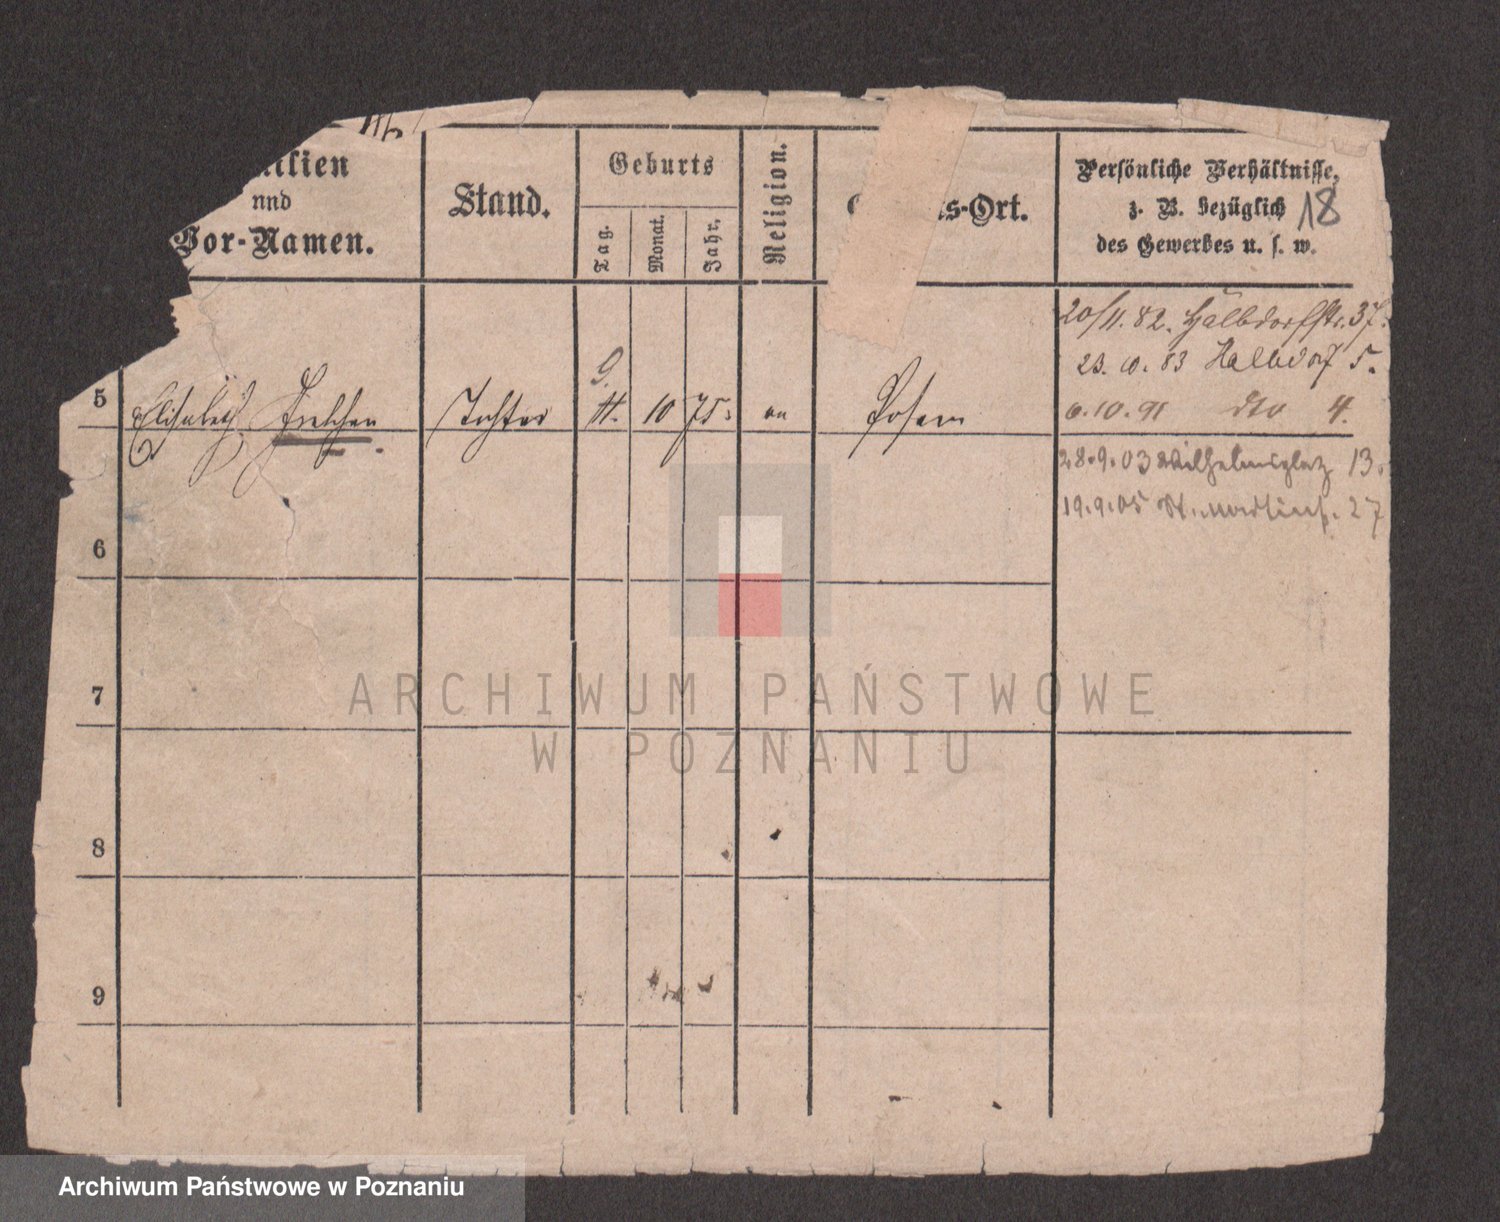 ilien
und
Vor-Namen.
Stand.
Geburts
Tag.
Monat.
Jahr.
Religion.
s-Ort.
Persönliche Verhältnisse,
z. B. bezüglich
des Gewerbes u. s. w.
18
20/11. 82. Halbdorfstr. 37.
23. 10. 83 Halbdorf 5.
6.10.91 dto 4.
5 Elisabeth Tochter 9. 11. 10 75. ev Posen
28.9.03 Wilhelmsplatz 13.
19.9.05 St. Martinstr. 27
6
7
8
9
ARCHIWUM PAŃSTWOWE
W POZNANIU
Archiwum Państwowe w Poznaniu